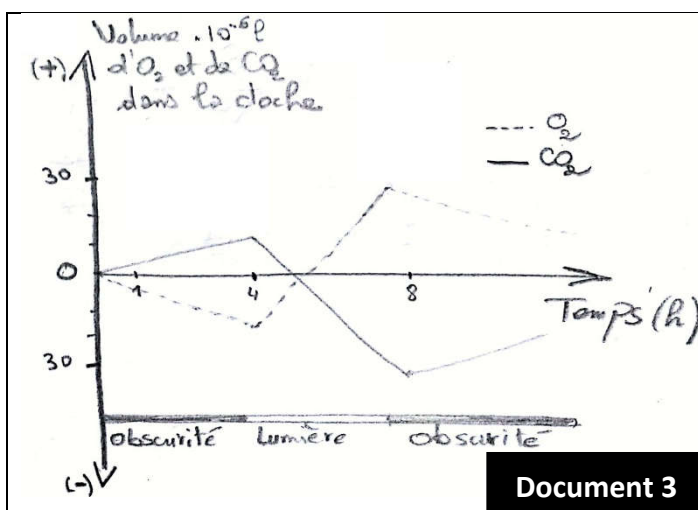 Volume .10⁻⁶ l
(+) d'O₂ et de CO₂
dans la cloche
---- O₂
— CO₂
30
0
1 4 8
Temps (h)
30
obscurité Lumière obscurité
(-)
Document 3